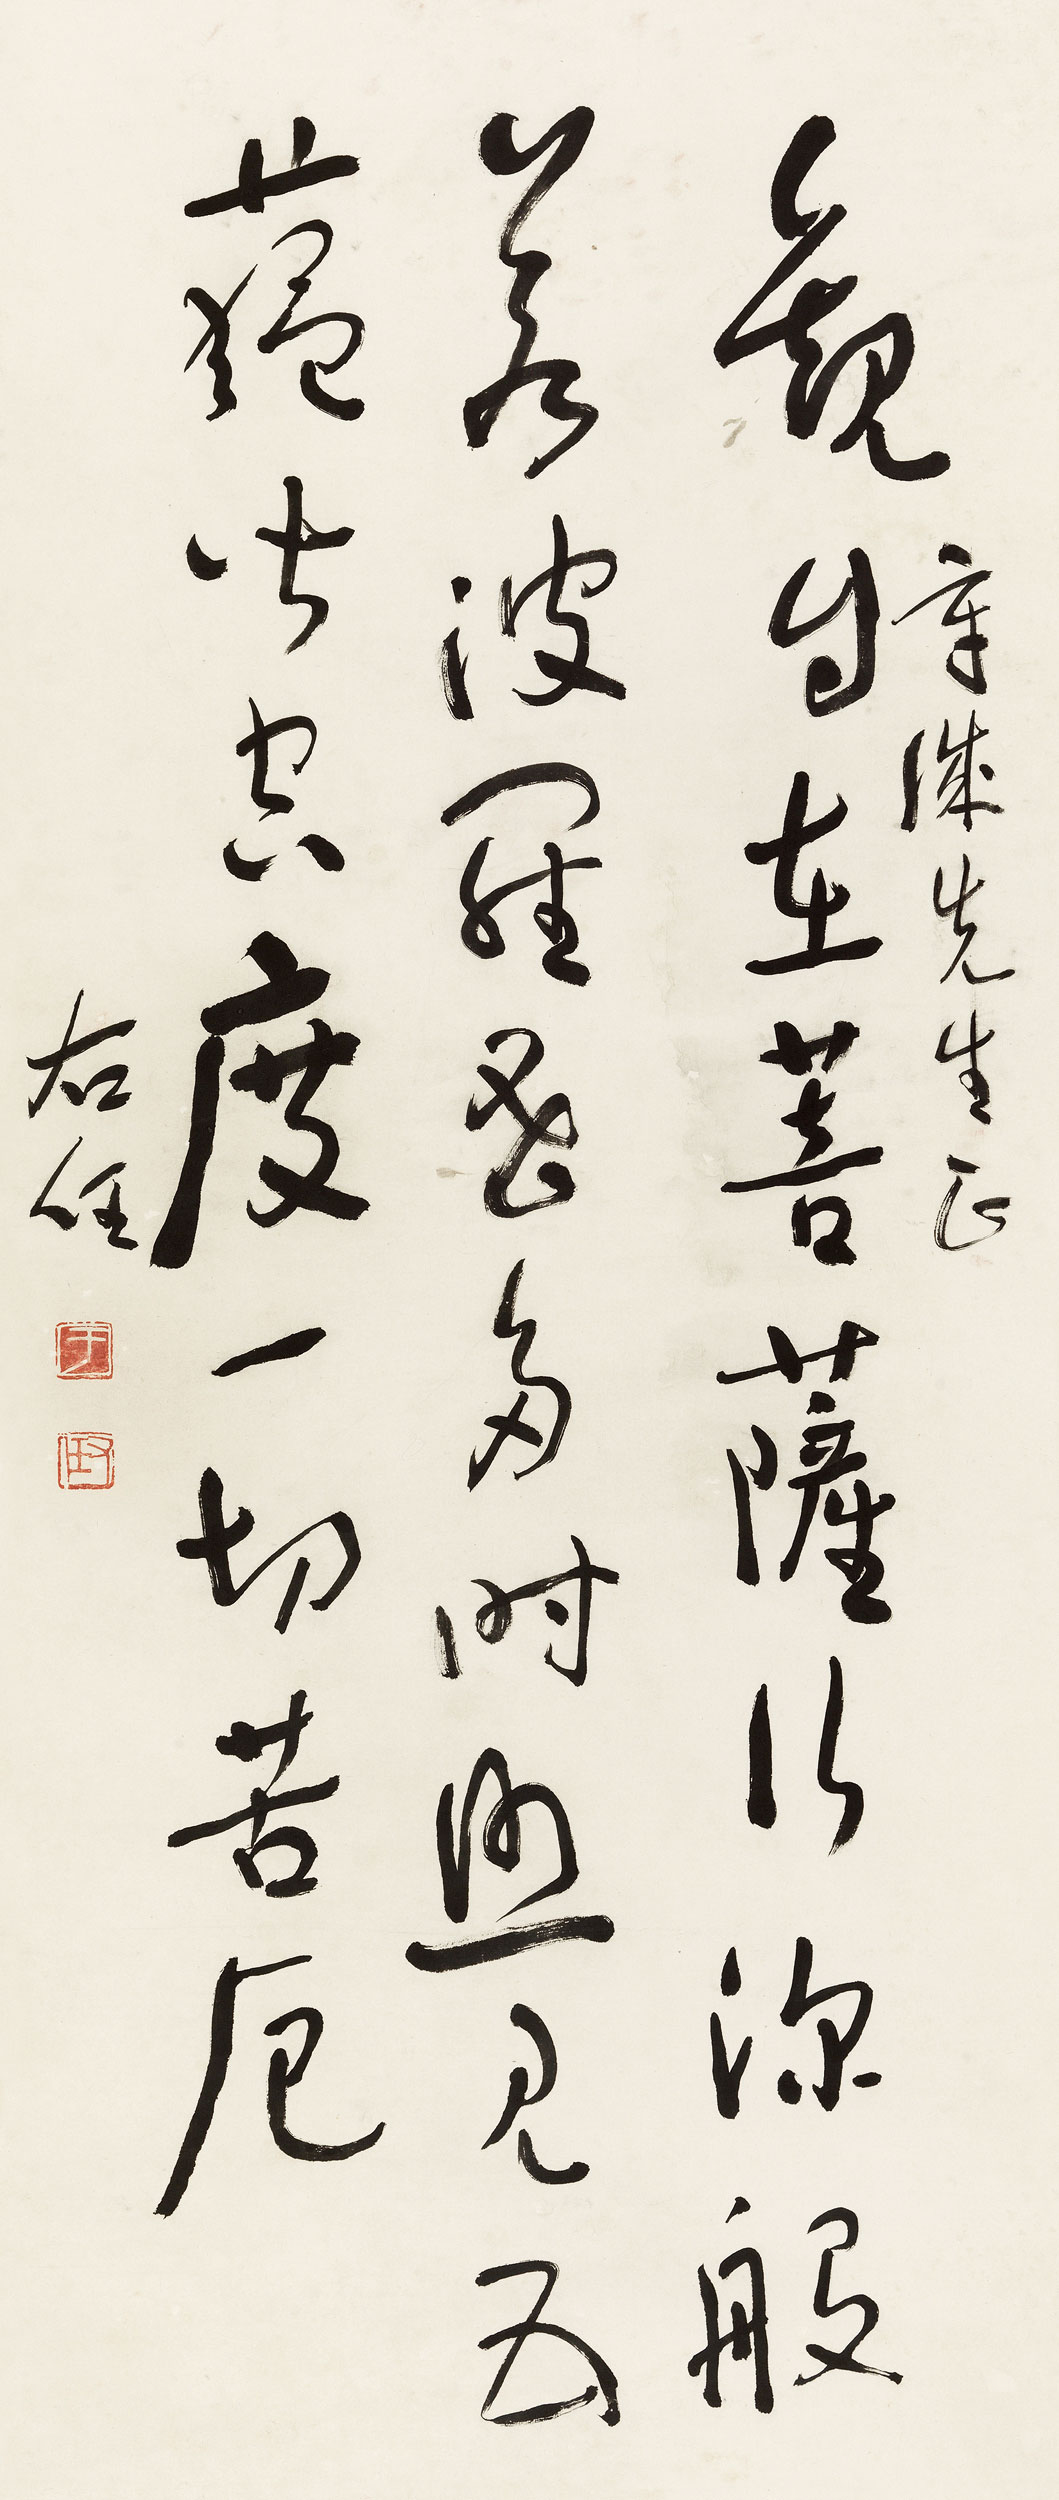 觀自在菩薩行深般
若波羅蜜多時照見五
蘊皆空度一切苦厄
章誠先生正
右任